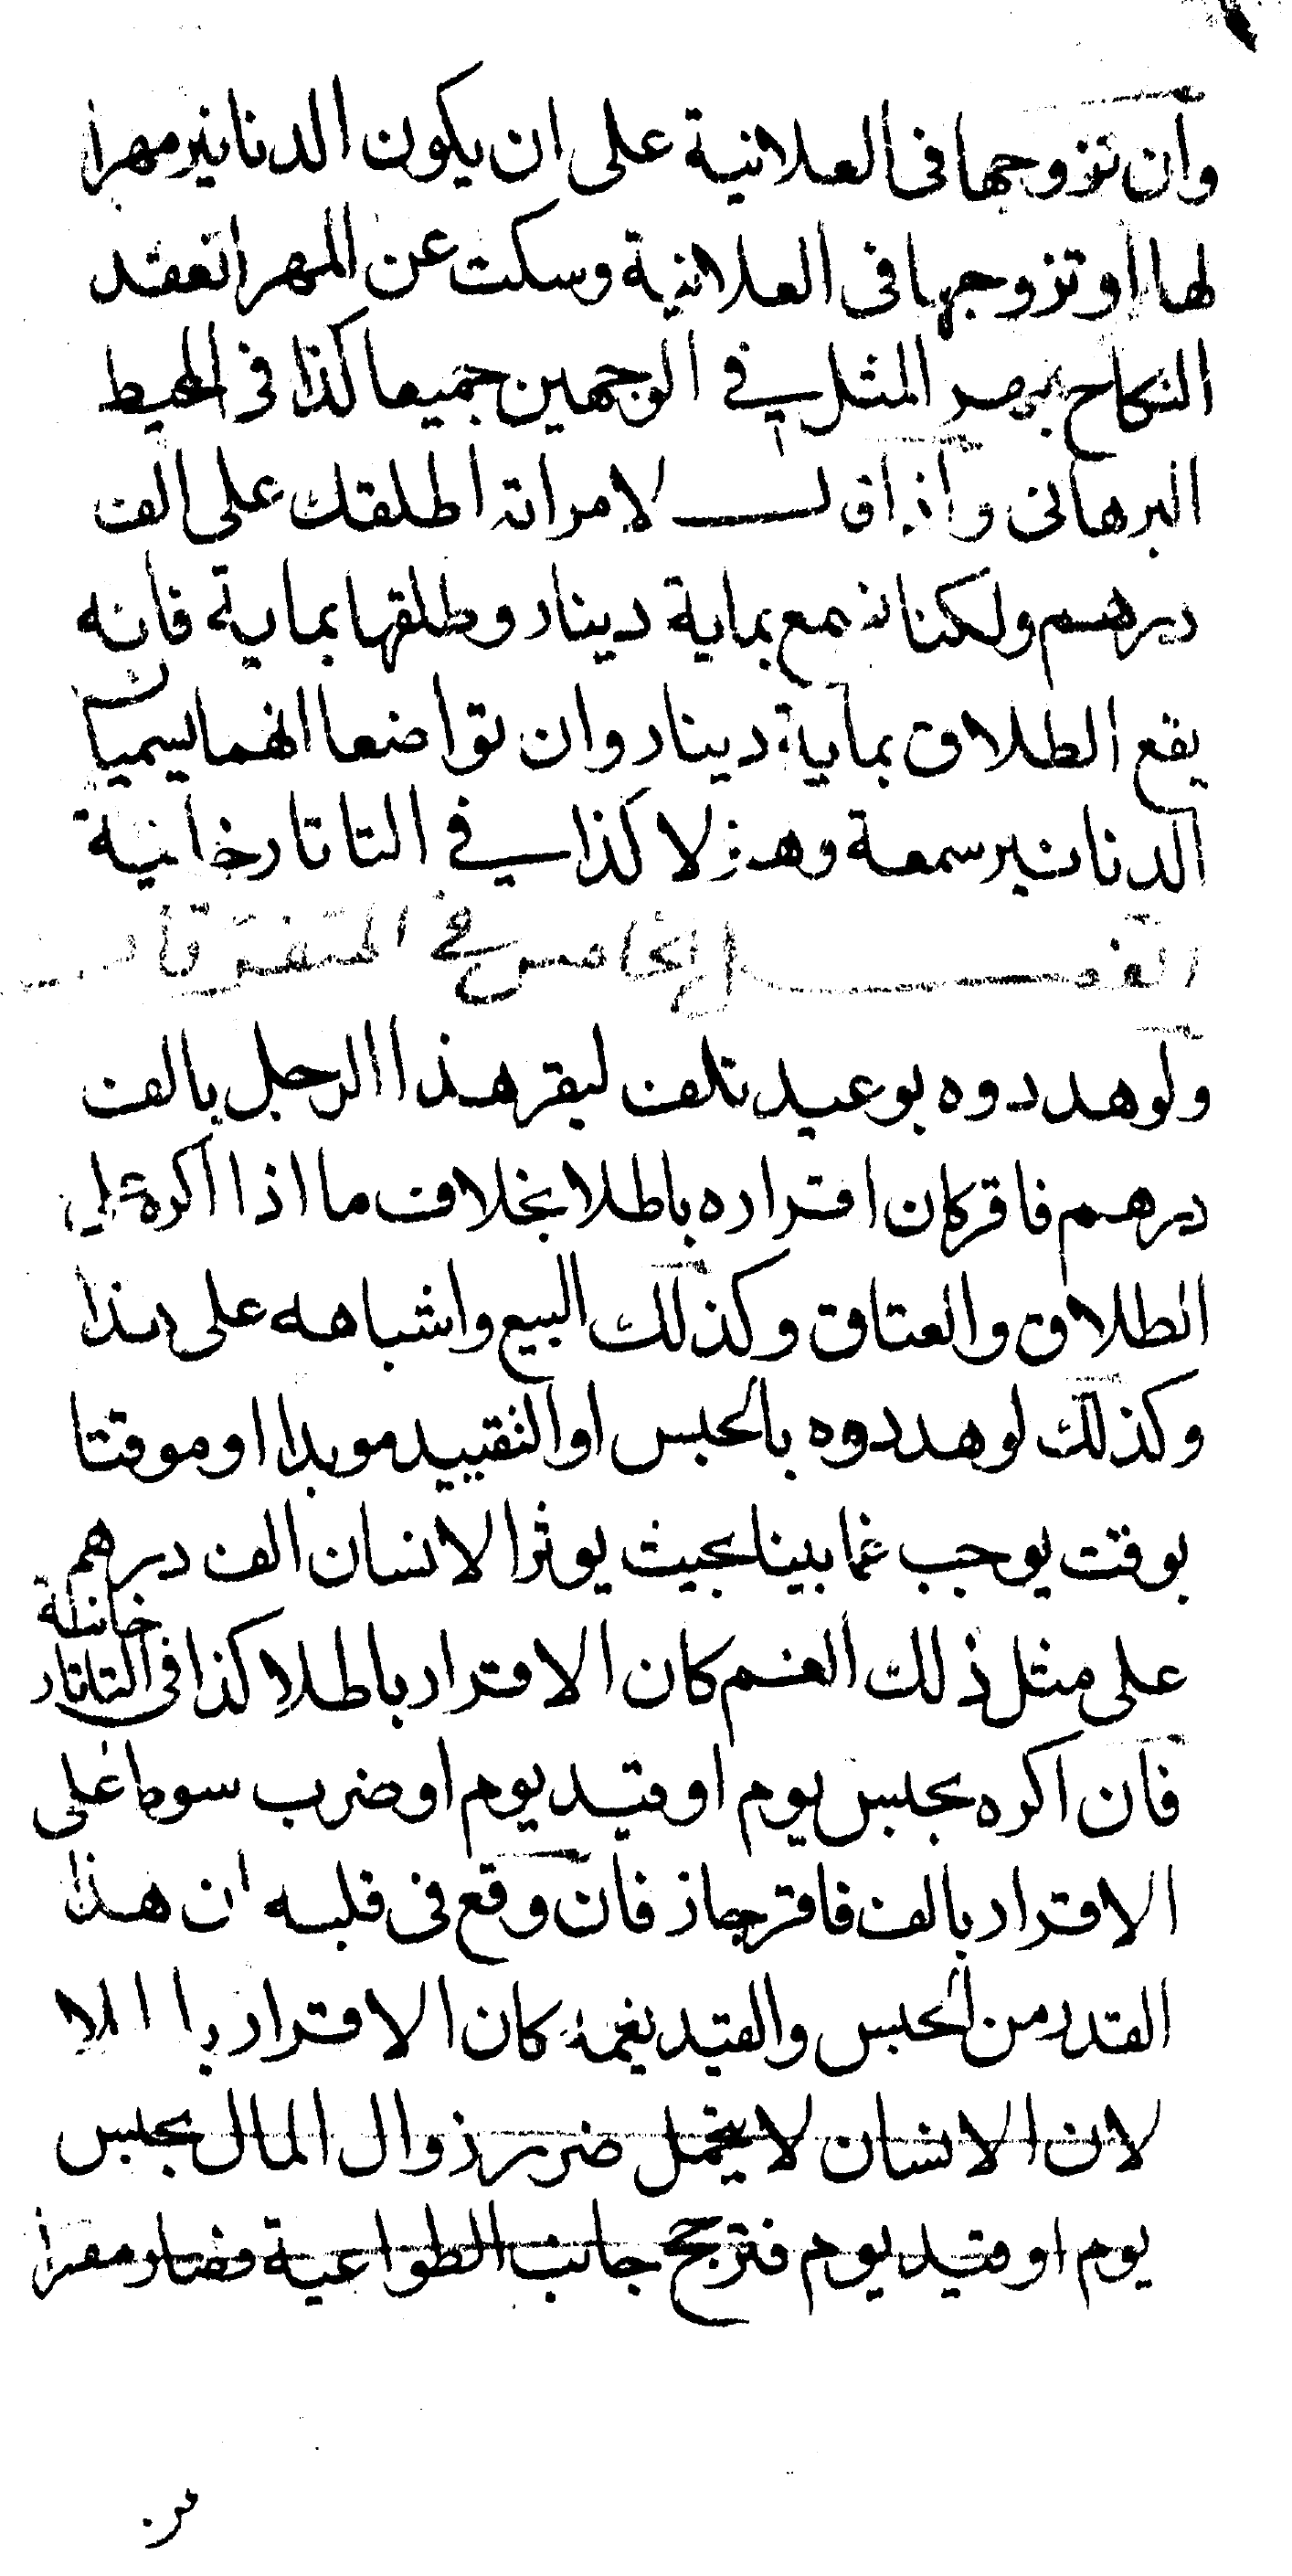 وان تزوجها فى العلانية على ان يكون الدنانير مهرا
لها او تزوجها فى العلانية وسكت عن المهر انعقد
النكاح بمهر المثل في الوجهين جميعا كذا فى المحيط
البرهانى واذا قال لامراته اطلقك على الف
درهم ولكنا نسمع بماية دينار وطلقها بماية فانه
يقع الطلاق بماية دينار وان تواضعا انهما يسميان
الدنانير سمعة وهزلا كذا في التاتارخانية
الفصل الخامس في المتفرقات
ولو هددوه بوعيد تلف ليقر هذا الرجل بالف
درهم فاقر كان اقراره باطلا بخلاف ما اذا اكره على
الطلاق والعتاق وكذلك البيع واشباهه على هذا
وكذلك لو هددوه بالحبس او التقييد موبدا او موقتا
بوقت يوجب غما بينا بحيث يوثر الانسان الف درهم
على مثل ذلك الغم كان الاقرار باطلا كذا فى التاتارخانية
فان اكره بحبس يوم او قيد يوم او ضرب سوط على
الاقرار بالف فاقر جاز فان وقع فى قلبه ان هذا
القدر من الحبس والقيد يغمه كان الاقرار باطلا
لان الانسان لا يتحمل ضرر زوال المال بحبس
يوم او قيد يوم فترجح جانب الطواعية فصار مقرا